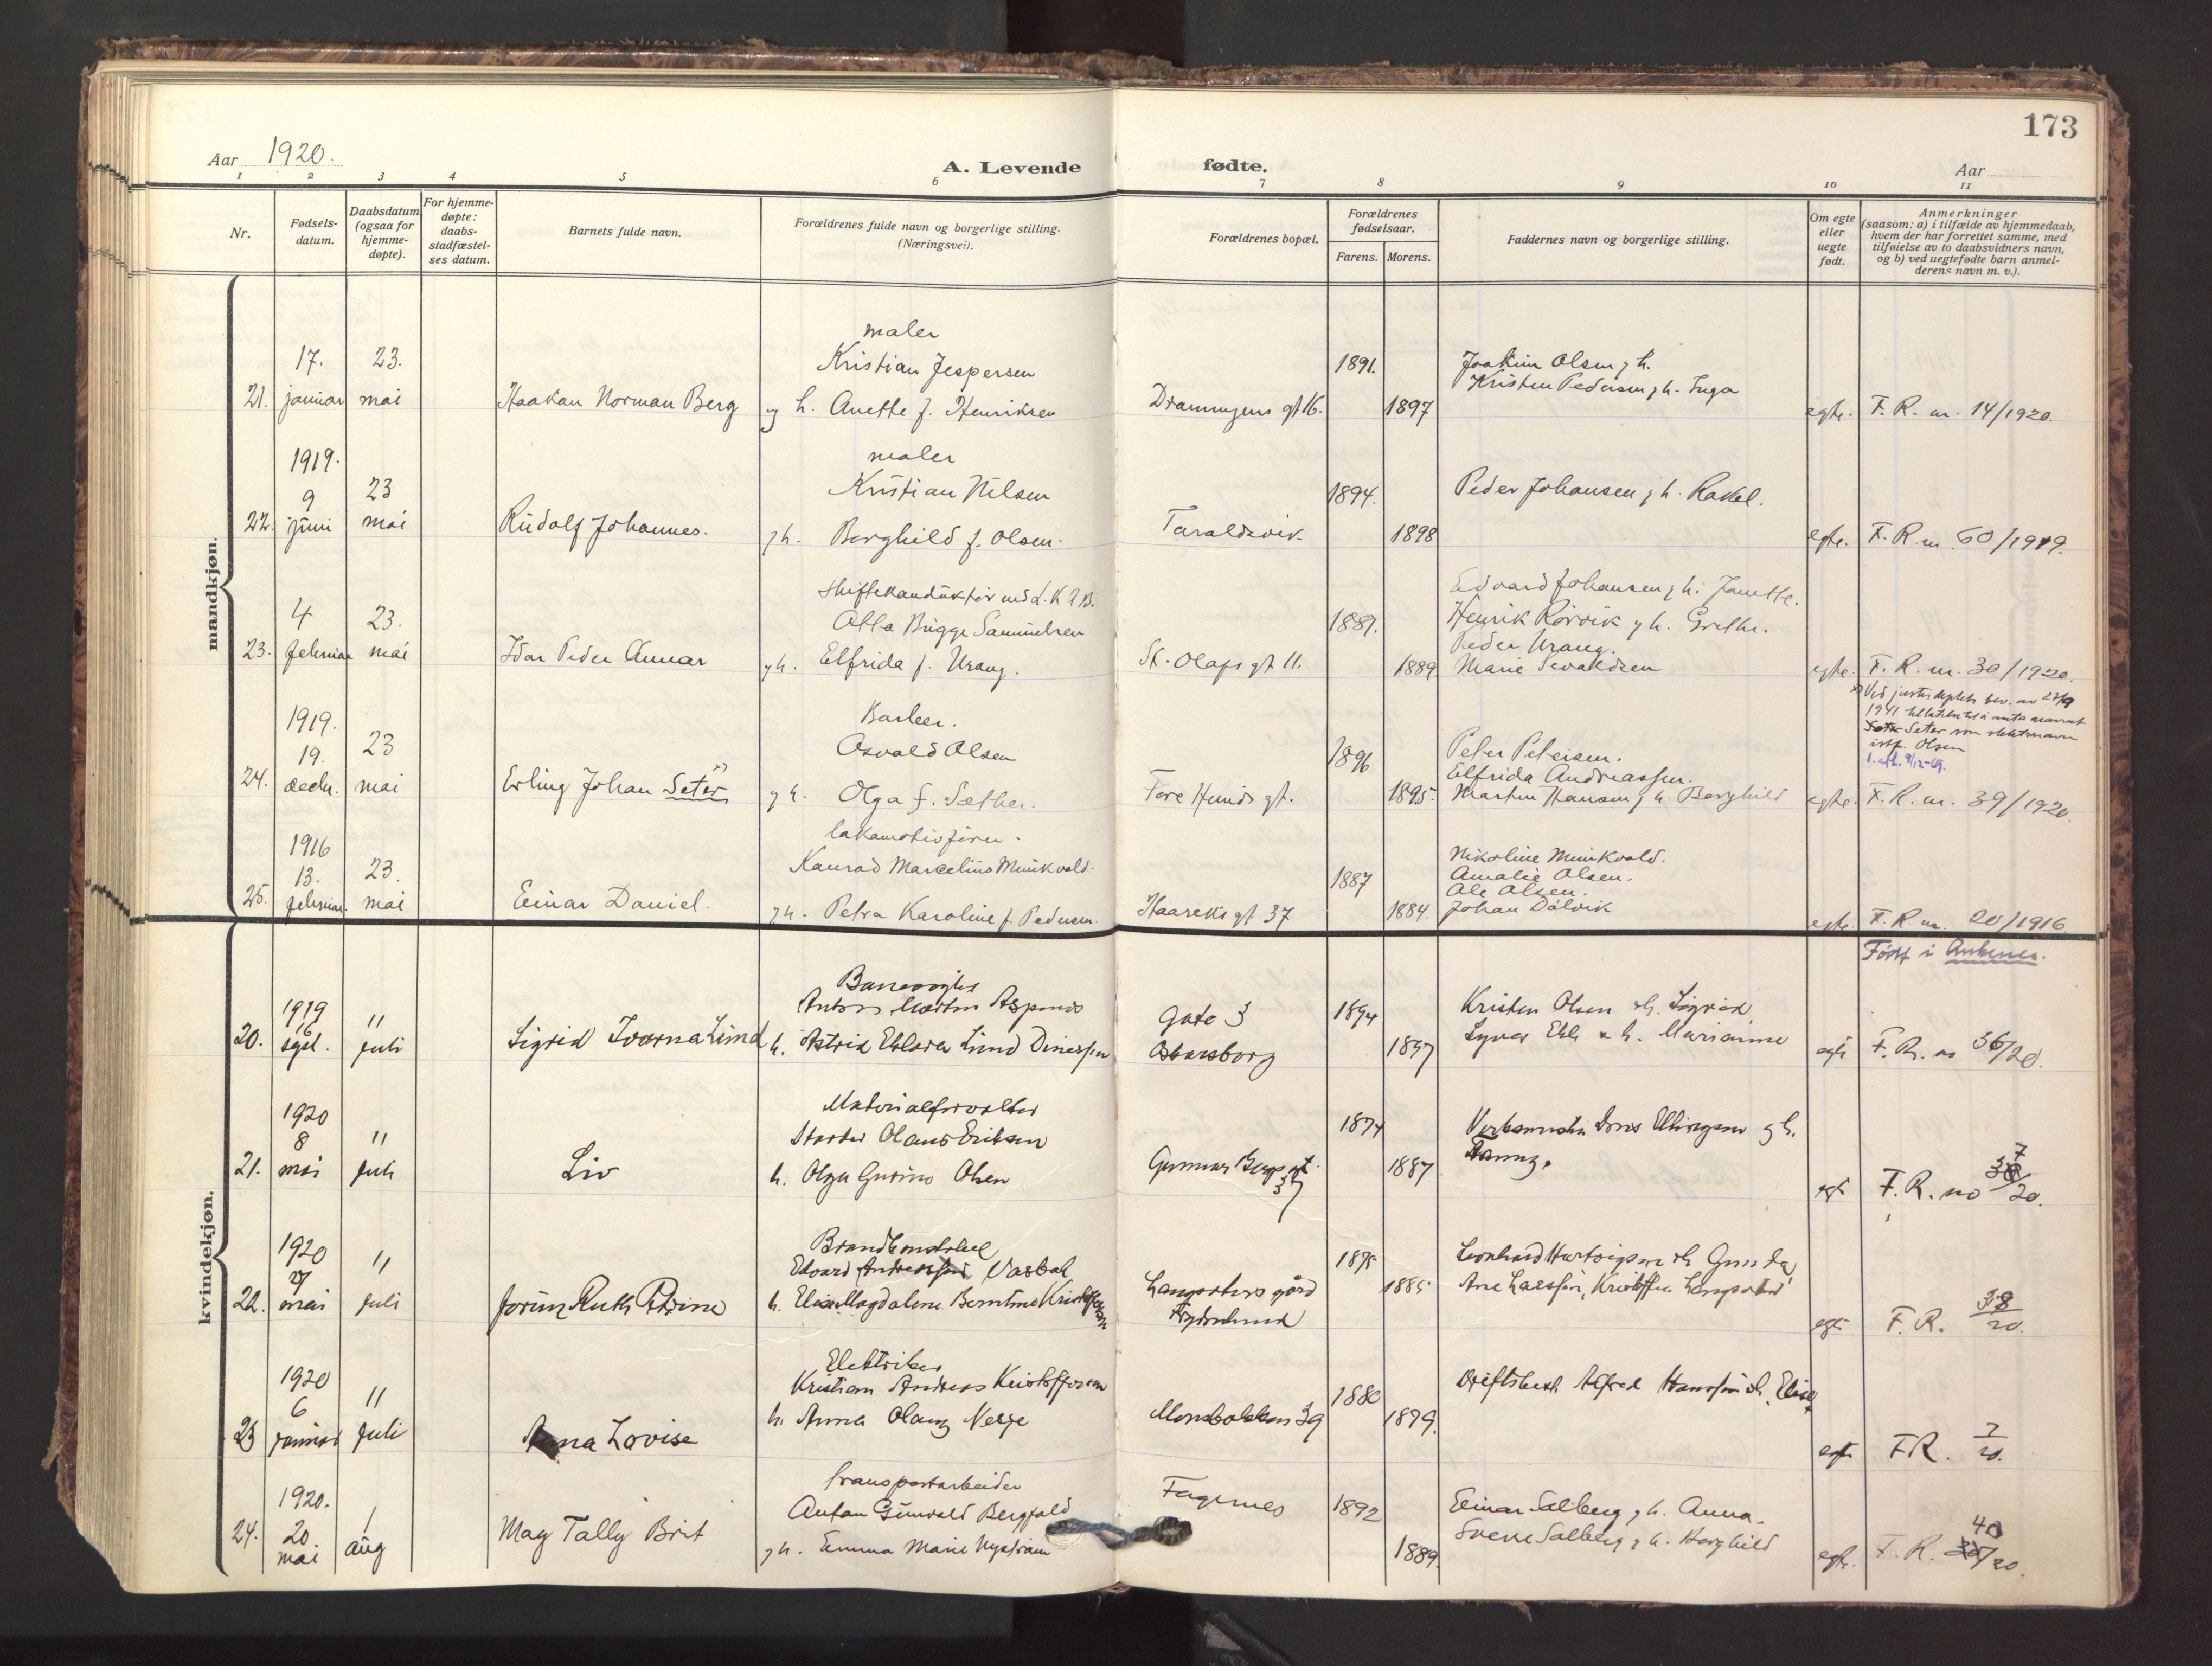 173
Aar 1920.
A. Levende
fødte.
Aar
1 2 3 4 5 6 7 8 9 10 11
Nr.
Fødsels-
datum.
Daabsdatum
(ogsaa for
hjemme-
døpte).
For hjemme-
døpte:
daabs-
stadfæstel-
ses datum.
Barnets fulde navn.
Forældrenes fulde navn og borgerlige stilling.
(Næringsvei).
Forældrenes bopæl.
Forældrenes
fødselsaar.
Farens. Morens.
Faddernes navn og borgerlige stilling.
Om egte
eller
uegte
født.
Anmerkninger
(saasom: a) i tilfælde av hjemmedaab,
hvem der har forrettet samme, med
tilføielse av to daabsvidners navn,
og b) ved uegtefødte barn anmel-
derens navn m. v.).
mandkjøn.
maler
17. 23. Kristian Jespersen 1891. Joakim Olsen g h.
Kristen Pedersen g h. Inga
21. januar mai Haakan Norman Berg og h. Anette f. Henriksen Dronningens gt 16. 1897 egte. F. R. nr. 14/1920.
1919. maler
9 23 Kristian Nilsen 1894. Peder Johansen g h. Rakel.
22. juni mai Rudolf Johannes. g h. Borghild f. Olsen. Taraldsvik 1898 egte. F. R. nr. 60/1919.
Skiftekonduktör ved L. K. A. B. Edvard Johansen g h. Janette.
4 23. Brigge Samuelsen 1887. Henrik Rörvik g h. Grethe.
Peder Urang.
23. februar mai Idar Peder Annar g h. Elfrida f. Urang. St. Olafs gt 11. 1889 Marie Sevaldsen egte. F. R. nr. 30/1920.
x) Ved justisdeptets bev. av 27/9
1941 tillatelse til å anta navnet
Seter som slektsnavn
istf. Olsen
1919. Barber.
19. 23 Osvald Olsen 1896 Peter Petersen.
Elfrida Andreassen.
24. decbr. mai Erling Johan Seter x) g h. Olga f. Sæther. Tore Hunds gt. 1895. Martin Hansen g h. Borghild egte. F. R. nr. 39/1920.
1916 lokomotivfører.
13. 23. Konrad Marcelius Munkvold. 1887 Nikoline Munkvold.
Amalie Olsen.
Ole Olsen.
25. februar mai Einar Daniel. g h. Petra Karoline f. Pedersen. Haareks gt 37 1884. Johan Dalvik egte. F. R. nr. 20/1916
Född i Ankenes.
kvindekjøn.
Banevogter
1919 Anton Martin Aspenes Gate 3 1894 Kristen Olsen h. Sigrid
20. 16 sept. " juli Sigrid Ivarna Lind h. Astrid Lind Oskarsborg 1897 h. Marianne egte F. R. no 36/20.
1920 Materialforvalter
8 " Olaus Eriksen 1874 Ellingsen g h.
21. mai juli Liv h. Olga Olsen Gunnar Bergs gt. 37 1887 Fanny. egte F. R. no 37/20.
1920 Brandkonstabel
27 " Edvard Andreassen Vasbak 1878 Leonhard Hartvigsen h. Gunda
22. mai juli Jorun Ruth Petrine h. Elise Magdalene Berntine Kristoffersen Langaaters gård 1885 Ane Larssen, Kristoffer egte F. R. 38/20.
1920 Elektriker
6 " Kristian Andreas Kristoffersen 1880 Driftsbest. Alfred Hanssen h. Elise
23 januar juli Anna Lovise h. Anna Olaug Nesje Mosebakken 39 1899. egte F R. 7/20.
1920. transportarbeider
20 1 Anton Gunvald Bergfald Fagernes 1892 Einar Salberg g h. Anna.
24. mai aug Mag Tally Brit g h. Emma Marie Nystrøm 1889. Sverre Salberg g h. Borghild egte. F. R. 40/20.